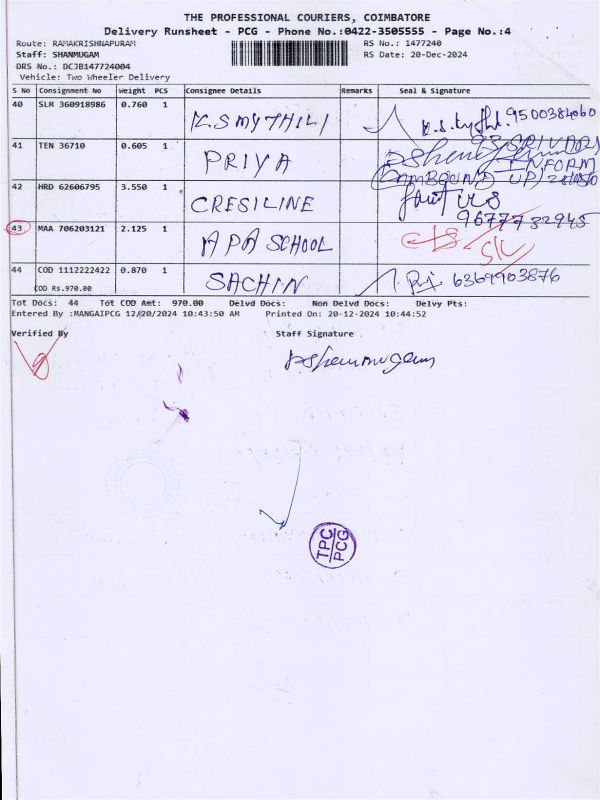 THE PROFESSIONAL COURIERS, COIMBATORE
Delivery Runsheet - PCG - Phone No.:0422-3505555 - Page No.:4
Route: RAMAKRISHNAPURAM
RS No.: 1477240
Staff: SHANMUGAM
RS Date: 20-Dec-2024
DRS No.: DCJB147724004
Vehicle: Two Wheeler Delivery
S No Consignment No Weight PCS Consignee Details Remarks Seal & Signature
40 SLM 360918986 0.760 1 K.S MYTHILI 9500384060
41 TEN 36710 0.605 1 PRIYA
INFORM
42 HRD 62606795 3.550 1 CRESILINE
9677732945
43 MAA 706203121 2.125 1 APA SCHOOL
44 COD 1112222422 0.870 1 SACHIN 6369903876
COD Rs.970.00
Tot Docs: 44 Tot COD Amt: 970.00 Delvd Docs: Non Delvd Docs: Delvy Pts:
Entered By :MANGAIPCG 12/20/2024 10:43:50 AM Printed On: 20-12-2024 10:44:52
Verified By Staff Signature
TPC
PCG